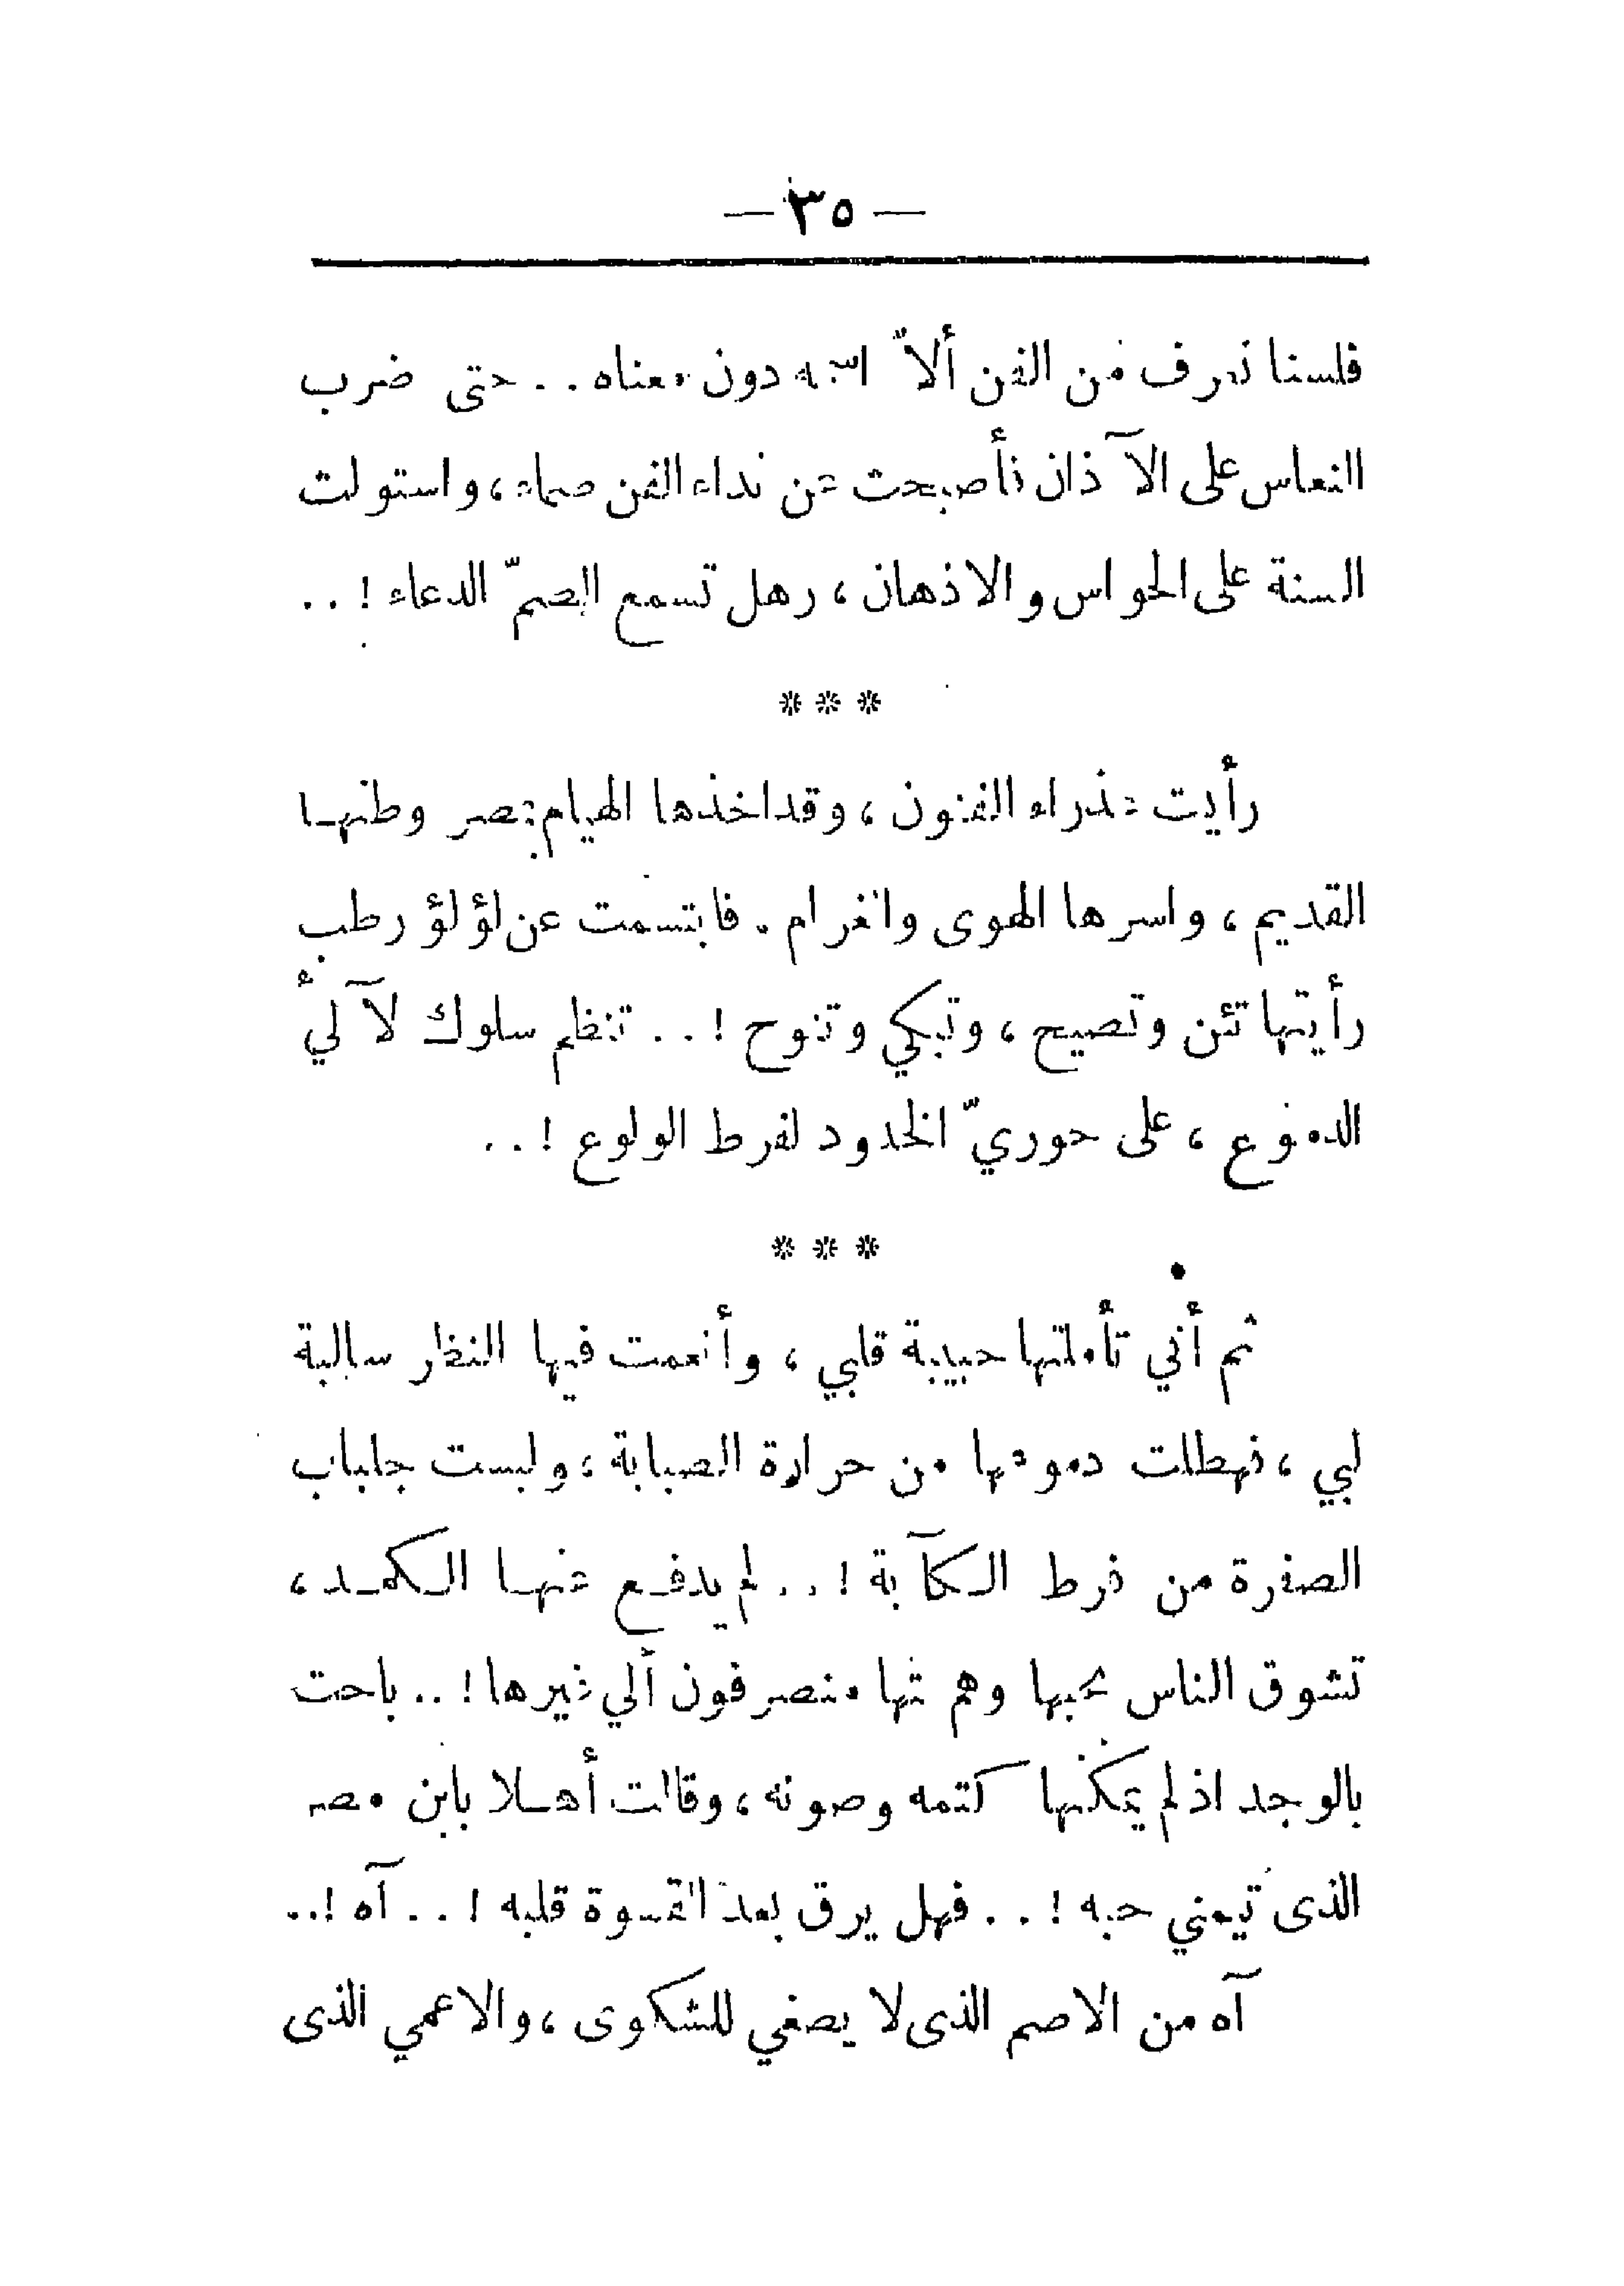 — ٣٥ —
فلسنا نعرف من الفن ألاّ اسمه دون معناه . . حتى ضرب
النعاس على الآذان فأصبحت عن نداء الفن صماء ، واستولت
السنة على الحواس والاذهان ، وهل تسمع الصمّ الدعاء ! . .
* * *
رأيت عذراء الفنون ، وقد اخذها الهيام بمصر وطنهـا
القديم ، واسرها الهوى والغرام . فابتسمت عن لؤلؤ رطب
رأيتها تئن وتصيح ، وتبكي وتنوح ! . . تنظم سلوك لآلي ً
الدموع ، على حوريّ الخدود لفرط الولوع ! . .
* * *
ثم أني تأملتها حبيبة قلبي ، وأنعمت فيها النظر سالبة
لبي ، فهطلت دموعها من حرارة الصبابة ، ولبست جلباب
الصفرة من فرط الكآبة ! . . لم يدفـع عنهـا الـكمـد ،
تشوق الناس بحبها وهم عنها منصرفون ألي غيرها ! . . باحت
بالوجد اذ لم يمكنها كتمه وصونه ، وقالت أهـلا بابن مصر
الذى تيمني حبه ! . . فهل يرق بعد القسوة قلبه ! . . آه ! . .
آه من الاصم الذى لا يصغي للشكوى ، والاعمي الذى